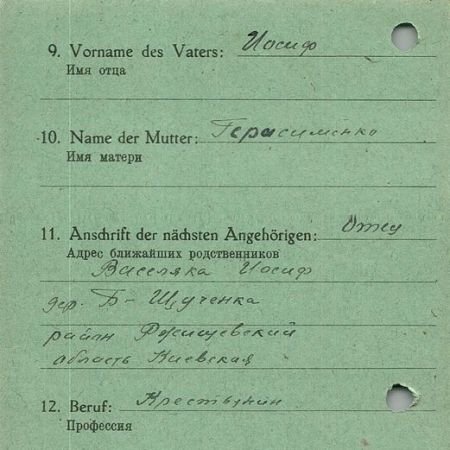 9. Vorname des Vaters: Иосиф
Имя отца
10. Name der Mutter: Герасименко
Имя матери
11. Anschrift der nächsten Angehörigen: Отец
Адрес ближайших родственников
Василяка Иосиф
дер. Б-Щученка
район Ржищевский
область Киевская
12. Beruf: Крестьянин
Профессия